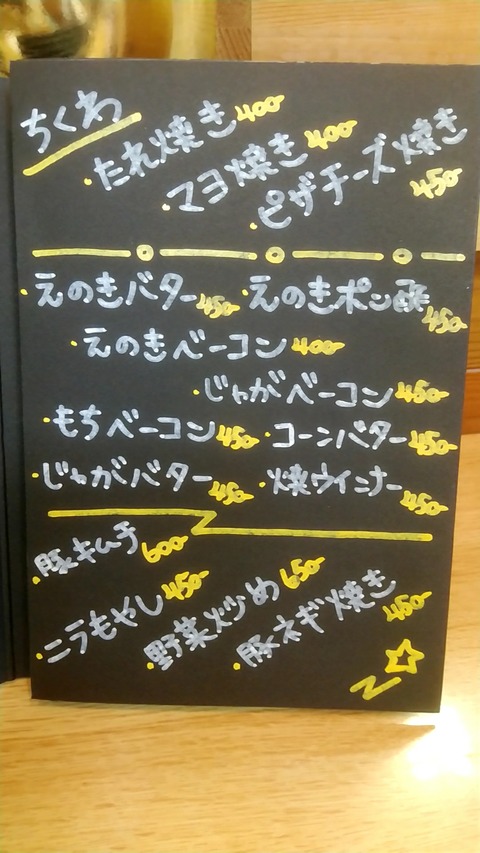 ちくわ
・たれ焼き 400-
・マヨ焼き 400-
・ピザチーズ焼き 450-
・えのきバター 450- ・えのきポン酢 450-
・えのきベーコン 400-
・じゃがベーコン 450-
・もちベーコン 450- ・コーンバター 450-
・じゃがバター 450- ・焼ウインナー 450-
・豚キムチ 600-
・ニラもやし 450-
・野菜炒め 650-
・豚ネギ焼き 450-